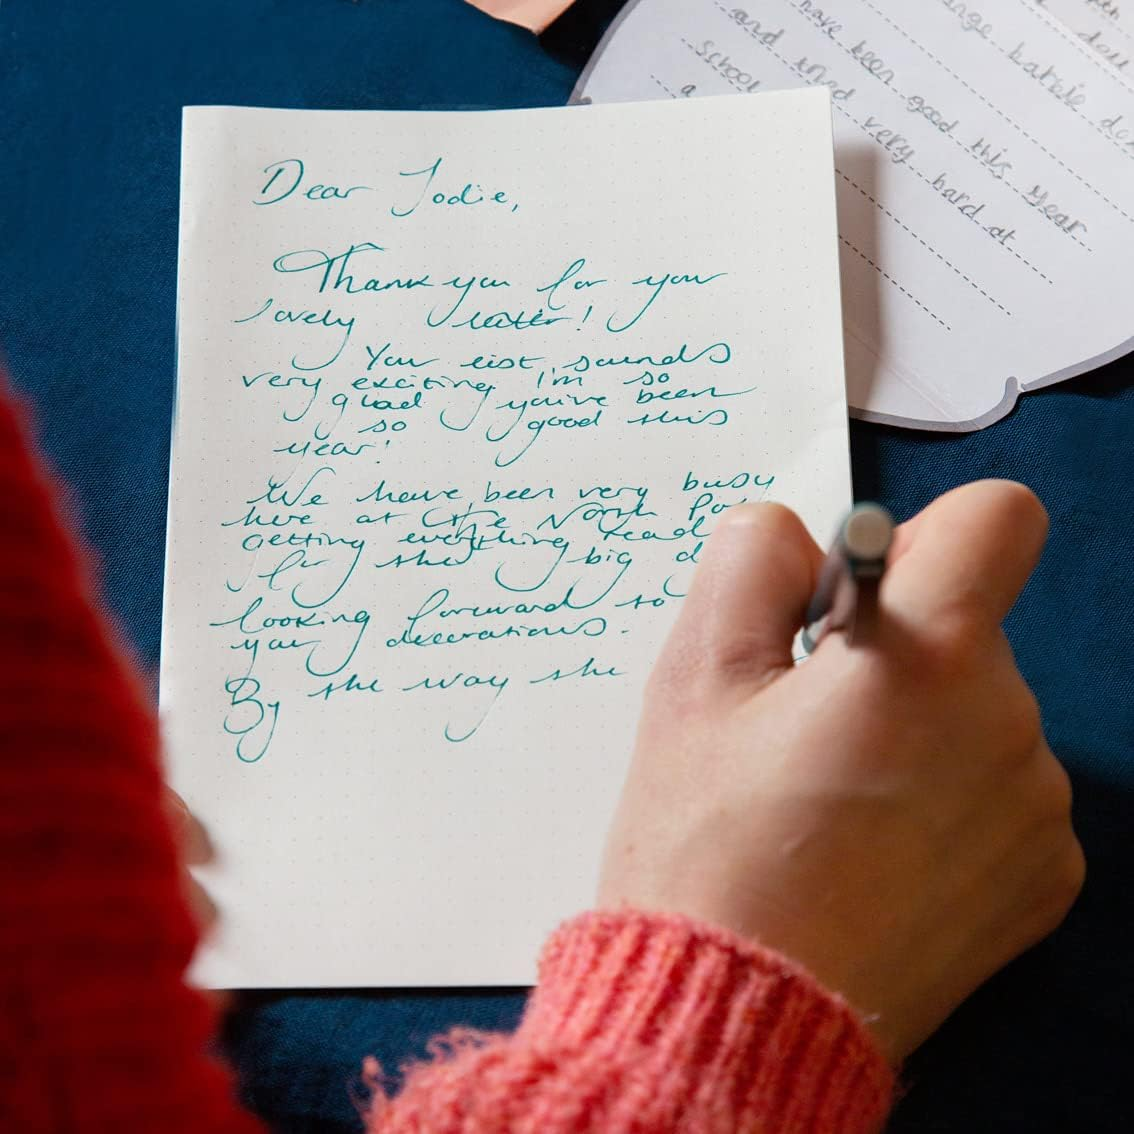 Dear Jodie,
Thank you for your
lovely letter!
Your list sounds
very exciting I'm so
glad you've been
so good this
year!
We have been very busy
here at the North Po
getting everything read
for the big d
looking forward to
your decorations.
By the way the
dou
ange barbie do
have been good this year
and tried very hard at
school
a